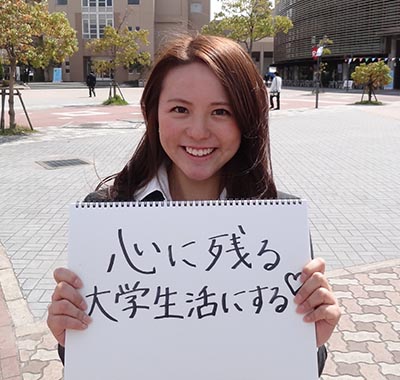 心に残る
大学生活にする♡